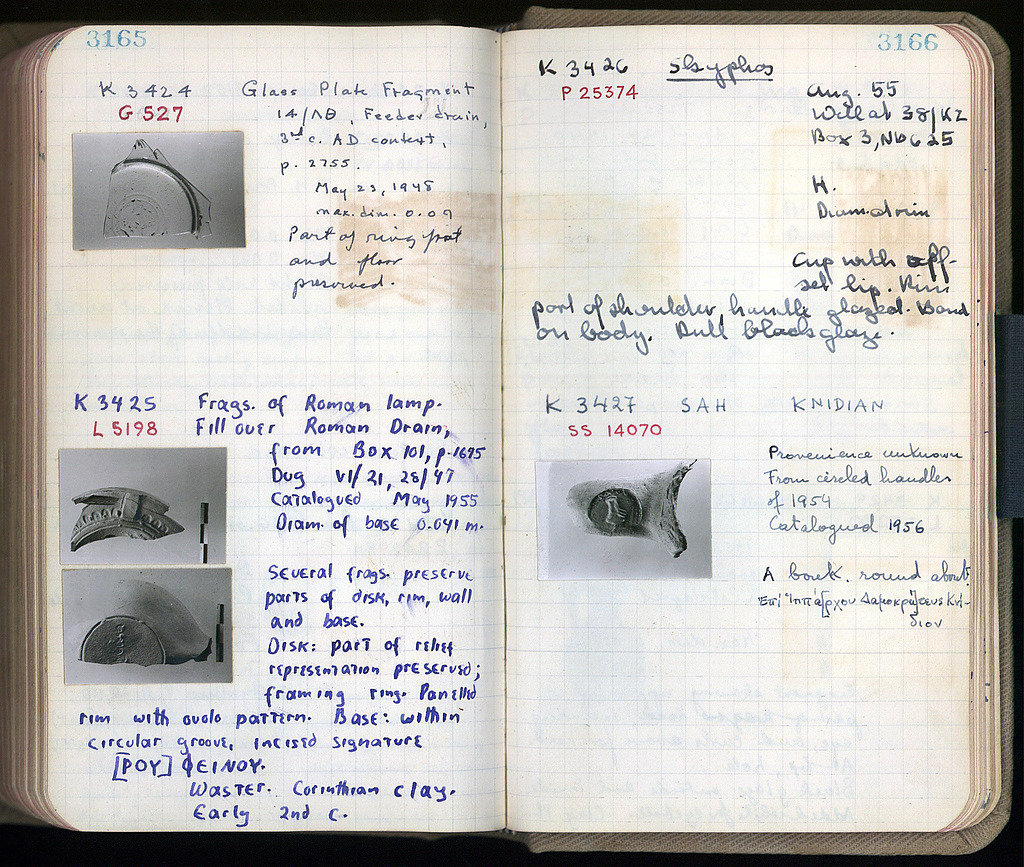 3165
K 3424 Glass Plate Fragment
G 527 14/ΛΘ, Feeder drain,
3rd c. AD context,
p. 2755.
May 23, 1948
max. dim. 0.09
Part of ring foot
and floor
preserved.
K 3425 Frags. of Roman lamp.
L 5198 Fill over Roman Drain,
from Box 101, p. 1675
Dug VI/21, 28/47
Catalogued May 1955
Diam. of base 0.041 m.
Several frags. preserve
parts of disk, rim, wall
and base.
Disk: part of relief
representation preserved;
framing ring. Panelled
rim with ovolo pattern. Base: within
circular groove, incised signature
[ΡΟΥ]ΦΕΙΝΟΥ.
Waster. Corinthian clay.
Early 2nd c.
3166
K 3426 Skyphos
P 25374 Aug. 55
Well at 38/ΚΖ
Box 3, Nb 625
H.
Diam.
Cup with off-
set lip. Rim
part of shoulder, handle glazed. Band
on body. Dull black glaze.
K 3427 SAH KNIDIAN
SS 14070
Provenience unknown
From circled handles
of 1954
Catalogued 1956
A bouk. round about
Ἐπὶ Ἱππά[ρχου Δαμοκρά]τευς Κνί-
διον